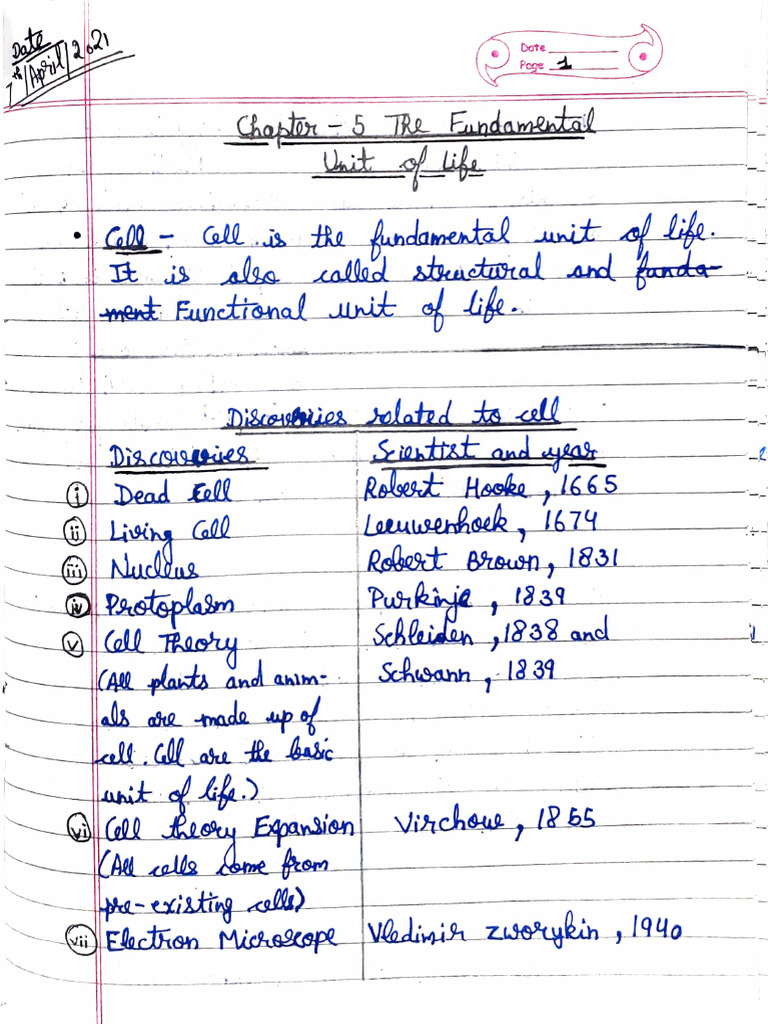 Date
7th/April/2021
Date
Page 1
Chapter - 5 The Fundamental
Unit of Life
• Cell - Cell is the fundamental unit of life.
It is also called structural and funda-
ment Functional unit of life.
Discoveries related to cell
Discoveries Scientist and year
(i) Dead Cell Robert Hooke, 1665
(ii) Living Cell Leeuwenhoek, 1674
(iii) Nucleus Robert Brown, 1831
(iv) Protoplasm Purkinje, 1839
(v) Cell Theory Schleiden, 1838 and
(All plants and anim- Schwann, 1839
als are made up of
cell. Cell are the basic
unit of life.)
(vi) Cell theory Expansion Virchow, 1855
(All cells come from
pre-existing cells)
(vii) Electron Microscope Vledimir Zworykin, 1940